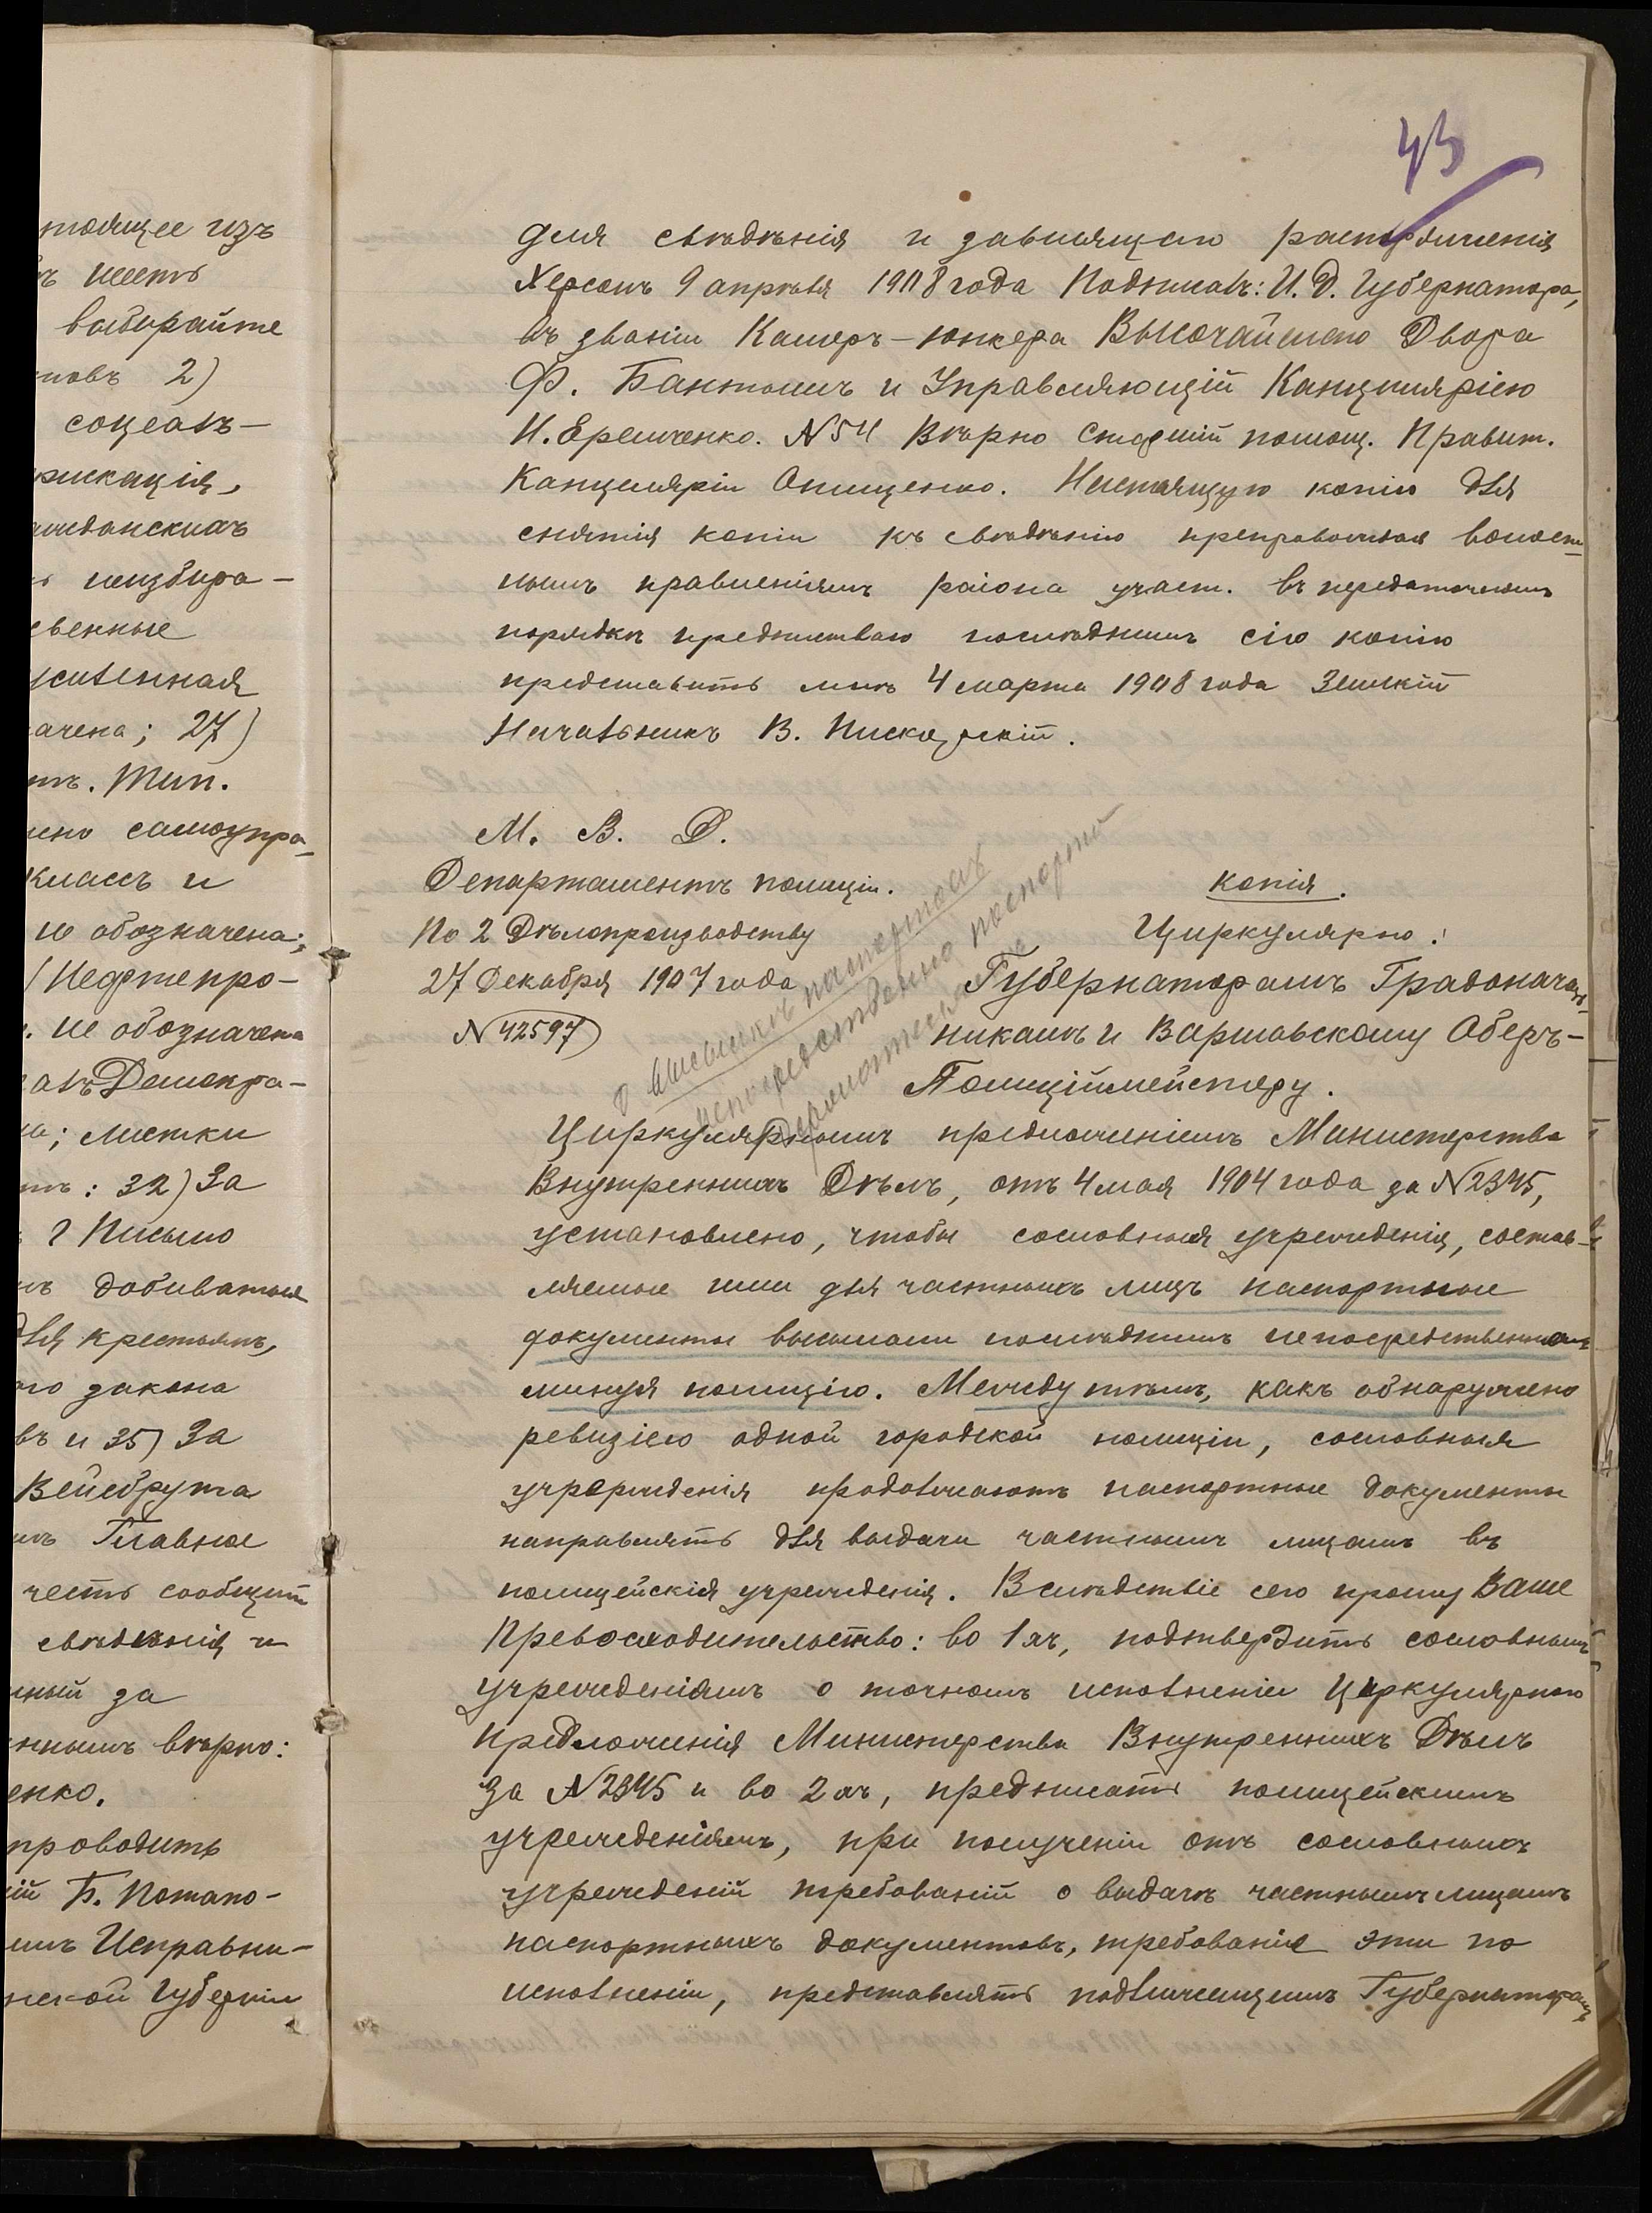 тоящее изъ
ъ шесть
выбирайте
новъ 2)
соцеалъ-
фикація,
ажданскихъ
неизбира-
свенные
усиленная
ачена; 27)
тъ. Тип.
ено самоупра-
классъ и
не обозначена;
(Нефтепро-
. не обозначена
алъ Демокра-
ь; листки
тъ: 32) За
? Письмо
ъ добиваться
для крестьянъ,
ого закона
въ и 35) За
Вейсбрута
ихъ Главное
честь сообщить
свѣдѣнія и
ный за
ннымъ вѣрно:
енко.
проводить
ій Б. Потапо-
имъ Исправни-
нской Губерніи
43
для свѣдѣнія и зависящаго распоряженія
Херсонъ 9 апрѣля 1908 года Подписалъ: И. Д. Губернатора,
въ званіи Камеръ-юнкера Высочайшаго Двора
Ф. Бантышъ и Управляющій Канцеляріею
И. Еремченко. №54 Вѣрно Старшій помощ. Правит.
Канцеляріи Онищенко. Настоящую копію для
снятія копіи къ свѣдѣнію препровождая волост-
нымъ правленіямъ района участ. въ передаточномъ
порядкѣ предписываю послѣднимъ сію копію
представить мнѣ 4 марта 1908 года Земскій
Начальникъ В. Пискорскій.
М. В. Д.
Департаментъ полиціи.
По 2 Дѣлопроизводству
27 Декабря 1907 года
№ 42597
о высылкѣ паспортовъ
непосредственно
копія.
Циркулярно!
Губернаторамъ Градоначаль-
никамъ и Варшавскому Оберъ-
Полиціймейстеру.
Циркулярнымъ предложеніемъ Министерства
Внутреннихъ Дѣлъ, отъ 4 мая 1904 года за №2345,
установлено, чтобы сословныя учрежденія, состав-
ляемые ими для частныхъ лицъ паспортные
документы высылали послѣднимъ непосредственно
минуя полицію. Между тѣмъ, какъ обнаружено
ревизіею одной городской полиціи, сословныя
учрережденія продолжаютъ паспортные документы
направлять для выдачи частнымъ лицамъ въ
полицейскія учрежденія. Вслѣдствіе сего прошу Ваше
Превосходительство: во 1хъ, подтвердить сословнымъ
учрежденіямъ о точномъ исполненіи Циркулярного
предложенія Министерства Внутреннихъ Дѣлъ
за №2345 и во 2хъ, предписать полицейскимъ
учрежденіямъ, при полученіи отъ сословныхъ
учрежденій требованій о выдачѣ частнымъ лицамъ
паспортныхъ документовъ, требованія эти по
исполненіи, представлять подлежащимъ Губернаторамъ